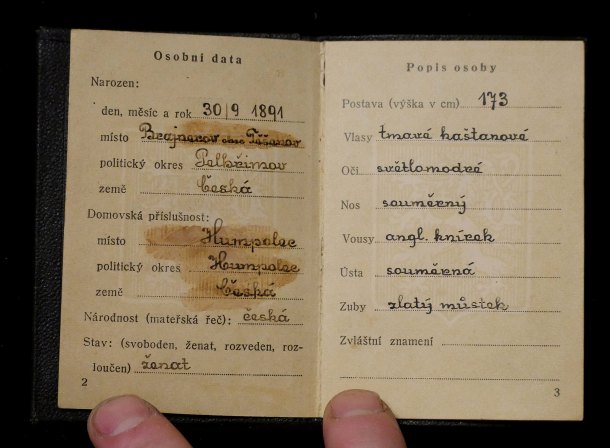 Osobní data
Narozen:
den, měsíc a rok 30|9 1891
místo
politický okres Pelhřimov
země Česká
Domovská příslušnost:
místo Humpolec
politický okres Humpolec
země Česká
Národnost (mateřská řeč): česká
Stav: (svoboden, ženat, rozveden, roz-
loučen) ženat
2
Popis osoby
Postava (výška v cm) 173
Vlasy tmavé kaštanové
Oči světlomodré
Nos souměrný
Vousy angl. knírek
Ústa souměrná
Zuby zlatý můstek
Zvláštní znamení
3